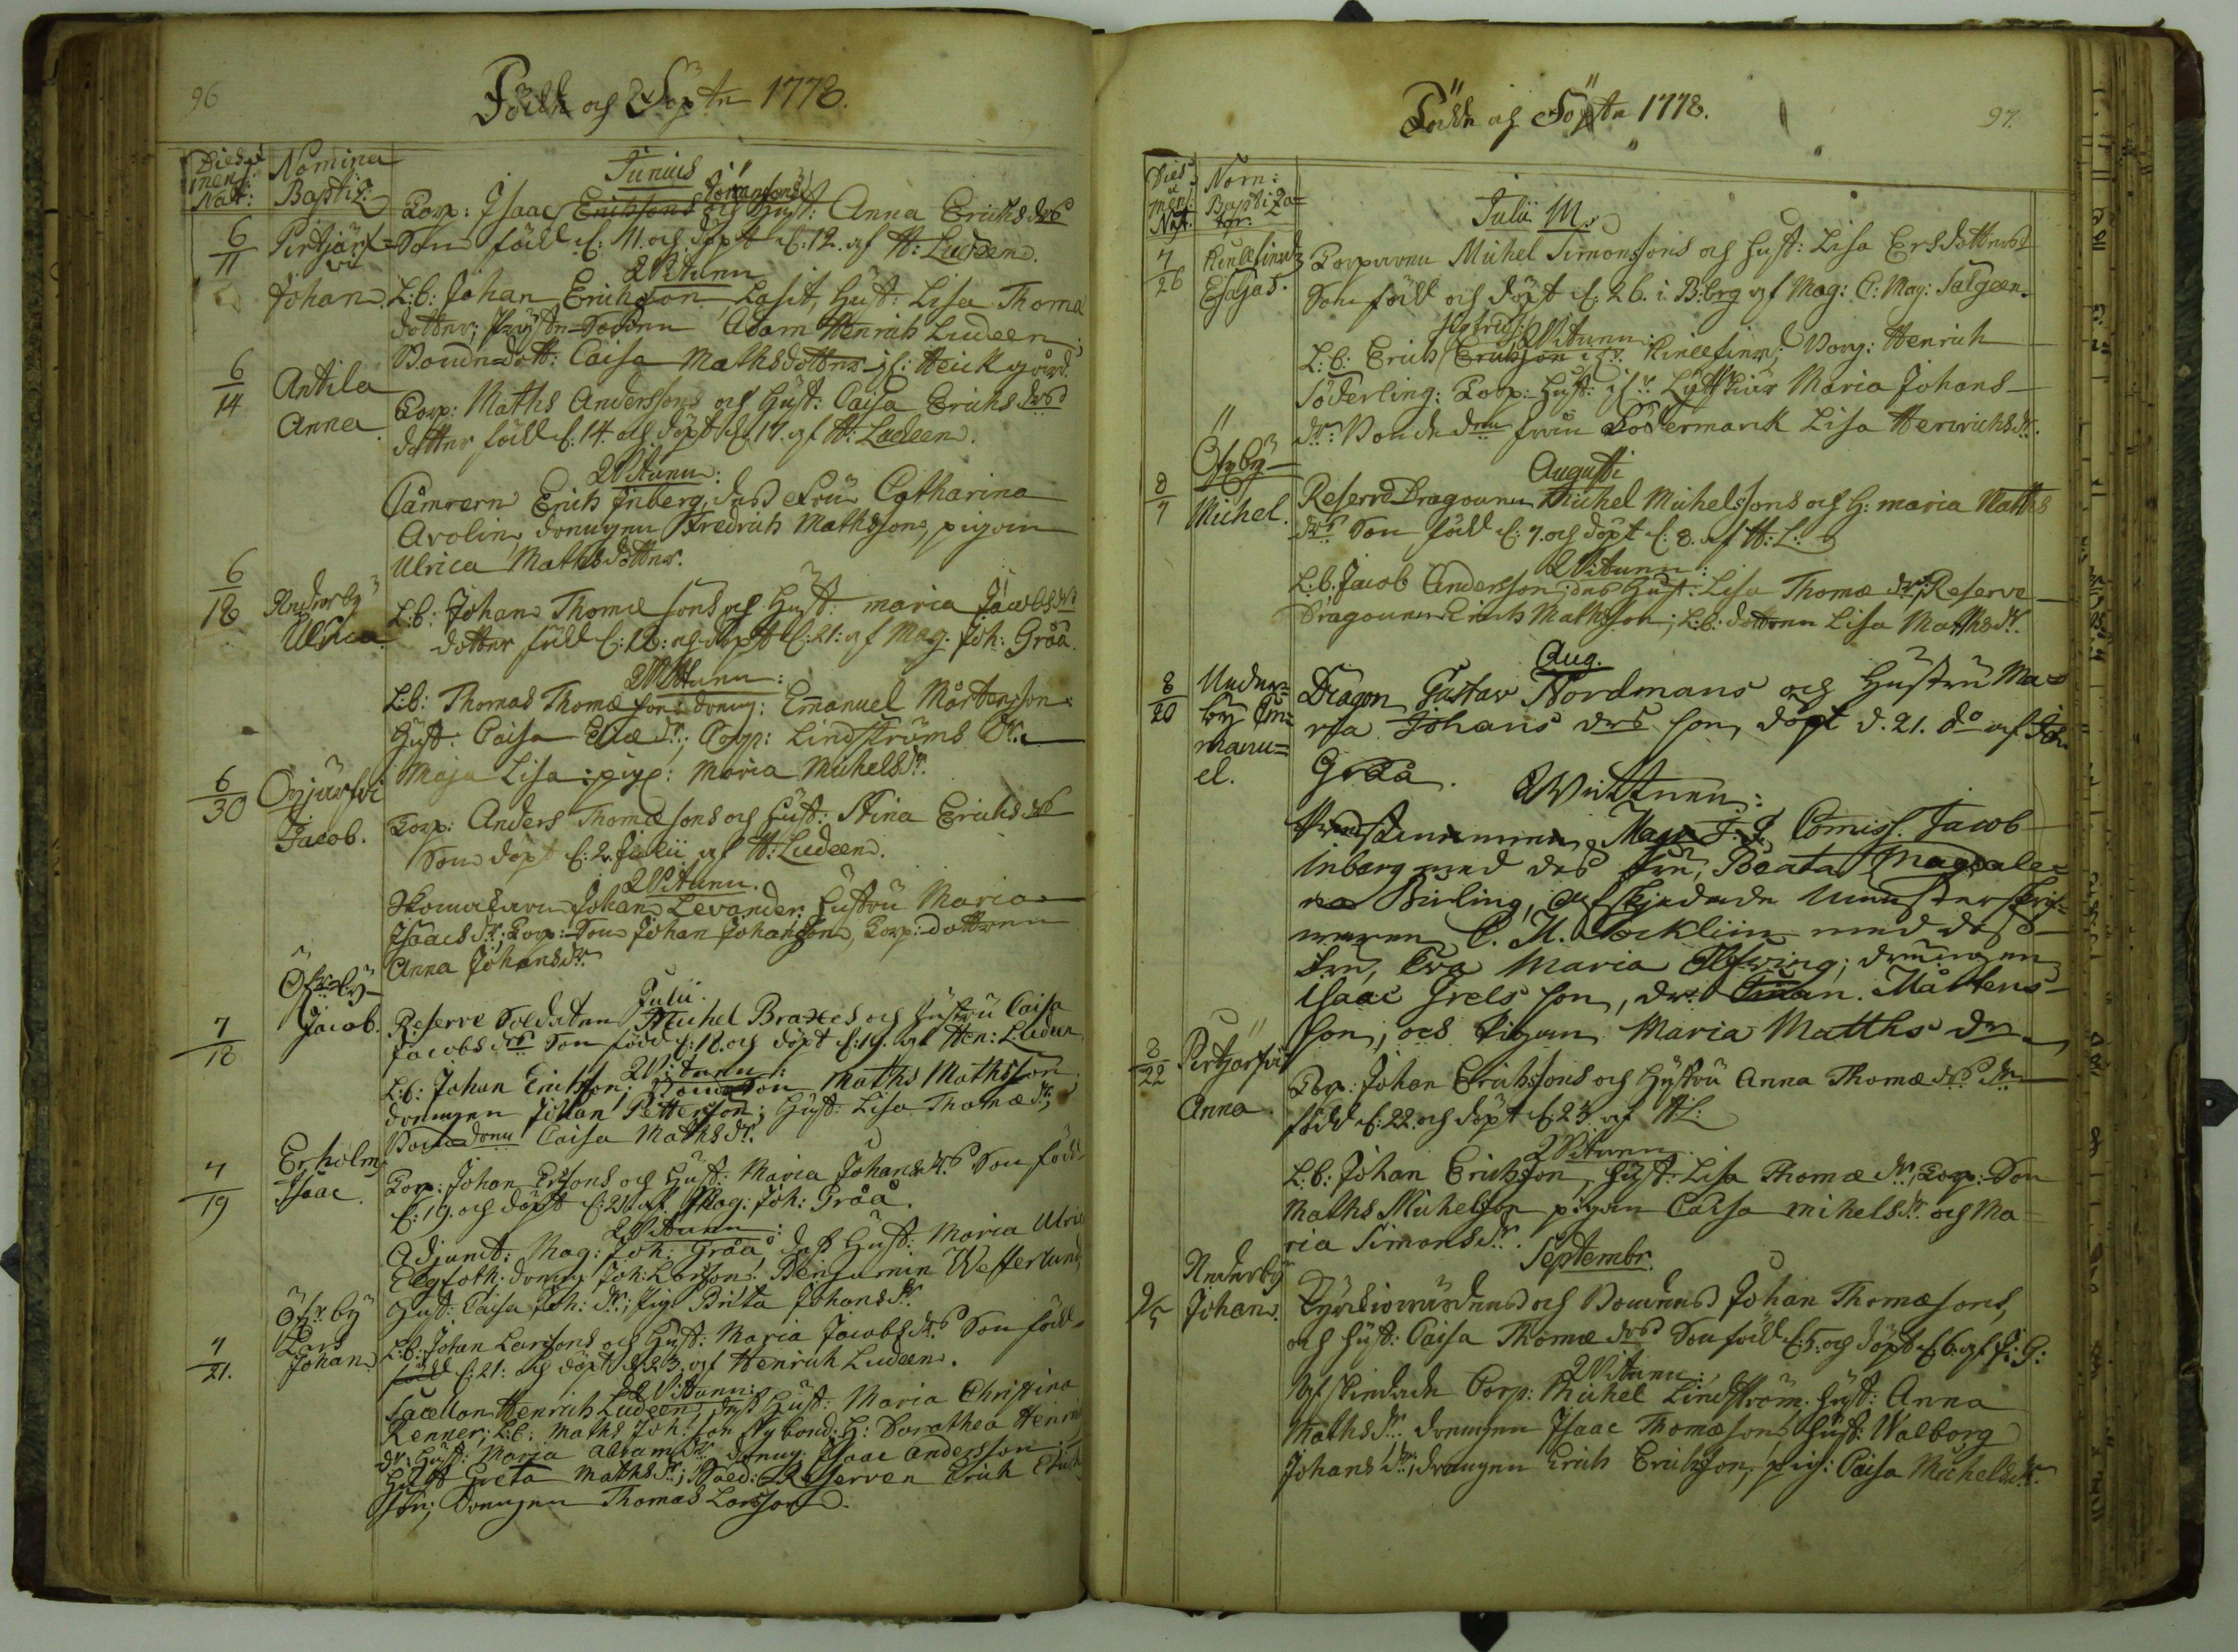 96
Födde och Döpte 1778.
Dies et mens: Nat:
Nomina Baptiz:
Junius
Torp: Isaac Erichssons Johanssons och Hust: Anna Erichs drs
6/11 Pirtjärfvi Son född d: 11. och döpt d: 12. af H: Ludeen.
Vittnen
Johan. L:b: Johan Erichsson, Hust: Lisa Thomæ
dotter; Adam Henrich Ludeen;
Bonde-dott: Caisa Mathsdotter
6/14 Antila
Anna. Torp: Maths Anderssons och Hust: Caisa Erichs drs
dotter född d: 14. och döpt d: 17. af H: Ludeen.
Vittnen:
Erich Inberg, dess Fru Catharina
Arolin, drengen Fredrich Mathsson, pigan
Ulrica Mathsdotter.
6/18 Nederby
Ulrica. L:b: Johan Thomæ sons och Hust: Maria Jacobs drs
dotter född d: 18: och döpt d: 21: af Mag. Joh: Gråå.
Vittnen:
L:b: Thomas Thomæ son; dreng: Emanuel Mårtensson
Hust: Caisa dr; Corp: Lindströms dr.
Maja Lisa; pig: Maria Michels dr.
6/30 Onjärfvi
Jacob. Torp: Anders Thomæ sons och Hust: Stina Erichs drs
Son döpt d: 2. Julii af H: Ludeen.
Vittnen.
Skomakaren Johan Levander, Hustru Maria
Isaacs dr; Torp:-Son Johan Johansson, Torp:-dottren
Anna Johans dr.
Öfverby
Julii.
7/18 Jacob. Reserve Soldaten Michel Braxes och Hustru Caisa
Jacobs drs Son född d: 18. och döpt d: 19. af Hen: Ludeen
Vittnen:
L:b: Johan Erichsson; Bondeson Maths Mathsson
drengen Johan Pettersson; Hust: Lisa Thomæ dr;
Caisa Maths dr.
7/19 Erholm
Isaac. Torp: Johan Ersons och Hust: Maria Johans drs Son född
d: 19. och döpt d: 21. af Mag: Joh: Gråå.
Vittnen:
Adjunct: Mag: Joh: Gråå, dess Hust: Maria Ulric
Elgfoth: dreng: Joh: Larsson: Benjamin Westerlund,
Hust: Caisa Joh: dr; Pig: Brita Johans dr.
7/21. Öfverby
Lars
Johan L:b: Johan Larssons och Hust: Maria Jacobs drs Son född
född d: 21: och döpt d: 23. af Henrich Ludeen.
Vittnen:
Sacellan Henrich Ludeen, dess Hust: Maria Christina
Renner; L:b: Maths Joh: son H: Dorothea Henrichs
dr: Hust: Maria Abram dr: dreng: Isaac Andersson:
Hust Greta Maths dr; Reserven Erich Erich
son; drengen Thomas Larsson.
97.
Födde och Döpte 1778.
Dies et men: Nat.
Nom: Baptiza=
tor.
Julii M:
7/26 Esajas. Torparen Michel Simonssons och Hust: Lisa Ersdotters
Son född och döpt d: 26. i B:brg af Mag: C: Mag: Salgeen.
Vittnen:
L:b: Erich Erichsson Sigfrids; Borg: Henrich
Söderling: Torp: Hust: Maria Johans
dr: Bonde från Södermark Lisa Henrichs dr.
Öfverby
Augusti
8/7 Michel. Reserve Dragounen Michel Michelssons och H: Maria Maths
drs Son född d: 7. och döpt d: 8. af H: L:
Vittnen:
L:b: Jacob Andersson, dess Hust: Lisa Thomæ dr; Reserve
Dragounen Erich Mathsson; L:b: dottren Lisa Maths dr.
Aug.
8/20 Neder=
by Em=
manu=
el. Dragon Gustav Nordmans och Hustru Ma=
ria Johans drs son, döpt d. 21. do af Joh.
Gråå.
Wittnen:
Comiss. Jacob
Inberg med des fru, Beata Magdale=
na Birling, afskjedade Munsterskrif=
waren C. M. med dess
fru, Eva Maria Elfving; drengen
Isaac Grels son, dr: Mårtens=
son, och Pigan Maria Matths dr
8/22 Pirtjärfvi
Anna. Torp: Johan Erichssons och Hustru Anna Thomæ drs dr
född d: 22. och döpt d: 23. af H L:
Vittnen.
L:b: Johan Erichsson, Hust: Lisa Thomæ dr; Torp: Son
Maths Michelsson pigan Caisa Mihels dr och Ma
ria Simons dr.
Septembr.
9/5 Nederby
Johan. Kyrkiowärdens och Bondens Johan Thomæsons,
och Hust: Caisa Thomæ drs Son född d: 5. och döpt d: 6. af J: G:
Vittnen:
Afskiedade Corp: Michel Lindström, Hust: Anna
Maths dr: drengen Isaac Thomæson, Hust: Walborg
Johans dr; drengen Erich Erichsson, pig: Caisa Michels dr.